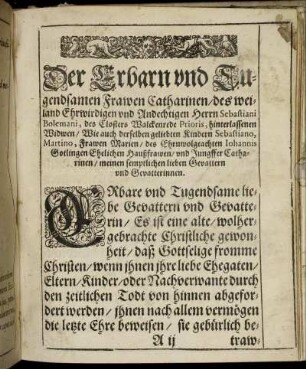 Der Erbarn vnd Tu-
gendsamen Frawen Catharinen/ des wei-
land Ehrwirdigen vnd Andechtigen Herrn Sebastiani
Bolemani, des Closters Walckenrede Prioris, hinterlassenen
Widwen/ Wie auch derselben geliebten Kindern Sebastiano,
Martino, Frawen Marien/ des Ehrnwolgeachten Iohannis
Gotlingen Ehelichen Haußfrawen/ vnd Jungffer Catha-
rinen/ meinen semptlichen lieben Gevattern
vnd Gevatterinnen.
ERbare vnd Tugendsame lie-
be Gevattern vnd Gevatte-
rin/ Es ist eine alte/ wolher-
gebrachte Christliche gewon-
heit/ daß Gottselige fromme
Christen/ wenn jhnen jhre liebe Ehegaten/
Eltern/ Kinder/ oder Nachverwante durch
den zeitlichen Todt von hinnen abgefor-
dert werden/ jhnen nach allem vermögen
die letzte Ehre beweisen/ sie gebürlich be-
A ij
traw-